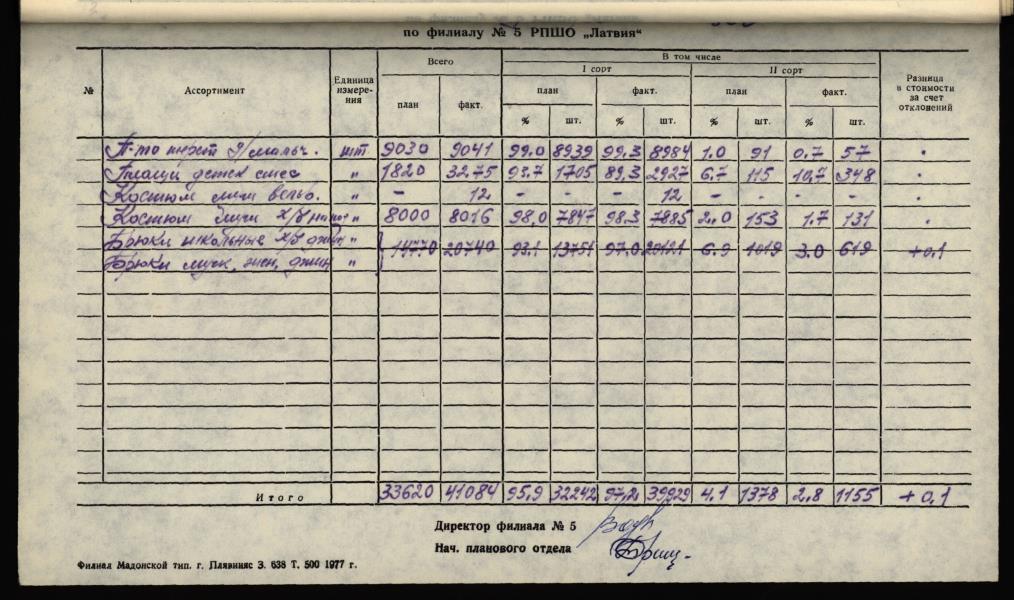 по филиалу № 5 РПШО „Латвия“
№ Ассортимент Единица измере- ния Всего В том числе Разница в стоимости за счет отклонений
I сорт II сорт
план факт. план факт. план факт.
% шт. % шт. % шт. % шт.
П-то шерст д/мальч. шт 9030 9041 99.0 8939 99.3 8984 1.0 91 0.7 57
Плащи детск смес " 1820 3275 93.7 1705 89.3 2927 6.7 115 10.7 348
Костюм вельв. " - 12 - - - 12 - - - -
Костюм х/б " 8000 8016 98,0 7847 98.3 7885 2.0 153 1.7 131
Брюки школьные х/б джин " 14770 20740 93.1 13751 97.0 20121 6.9 1019 3.0 619 +0,1
Брюки муж, жен, джин "
Итого 33620 41084 95,9 32242 97,2 39929 4.1 1378 2,8 1155 +0,1
Директор филиала № 5
Нач. планового отдела
Филиал Мадонской тип. г. Плявиняс З. 638 Т. 500 1977 г.